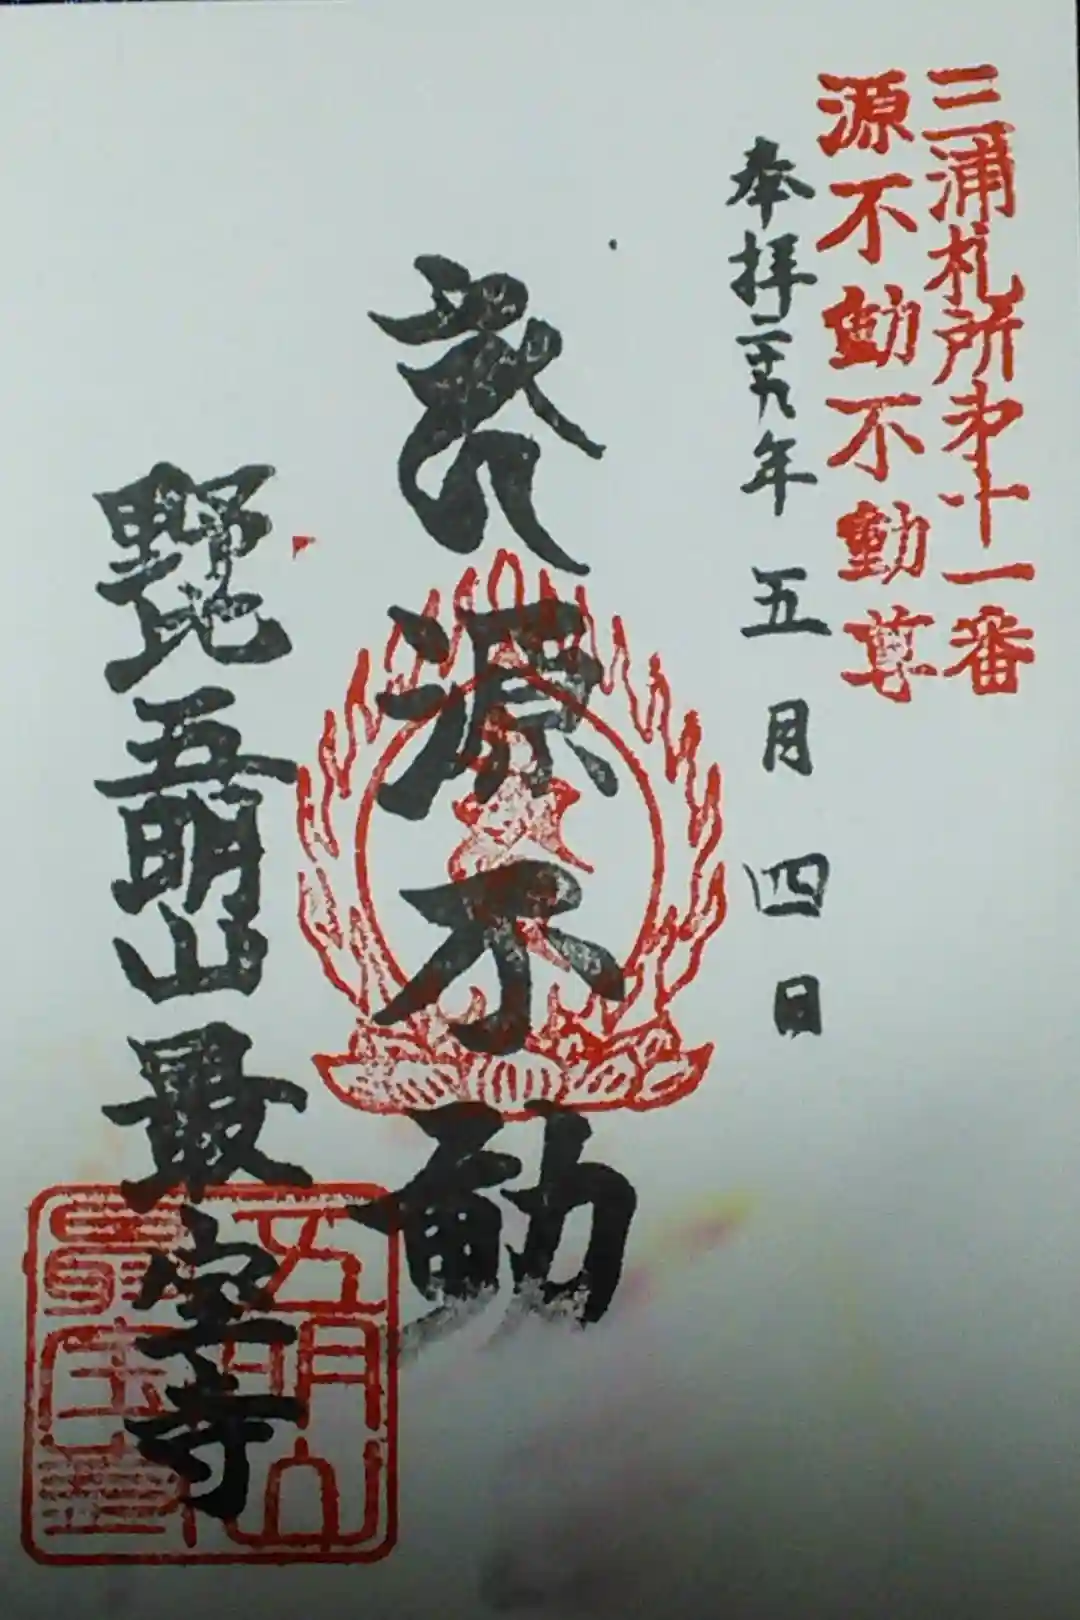 三浦札所第十一番
源不動不動尊
奉拝二十九年五月四日
源不動
野比
五明山最宝寺
五明山
最宝寺